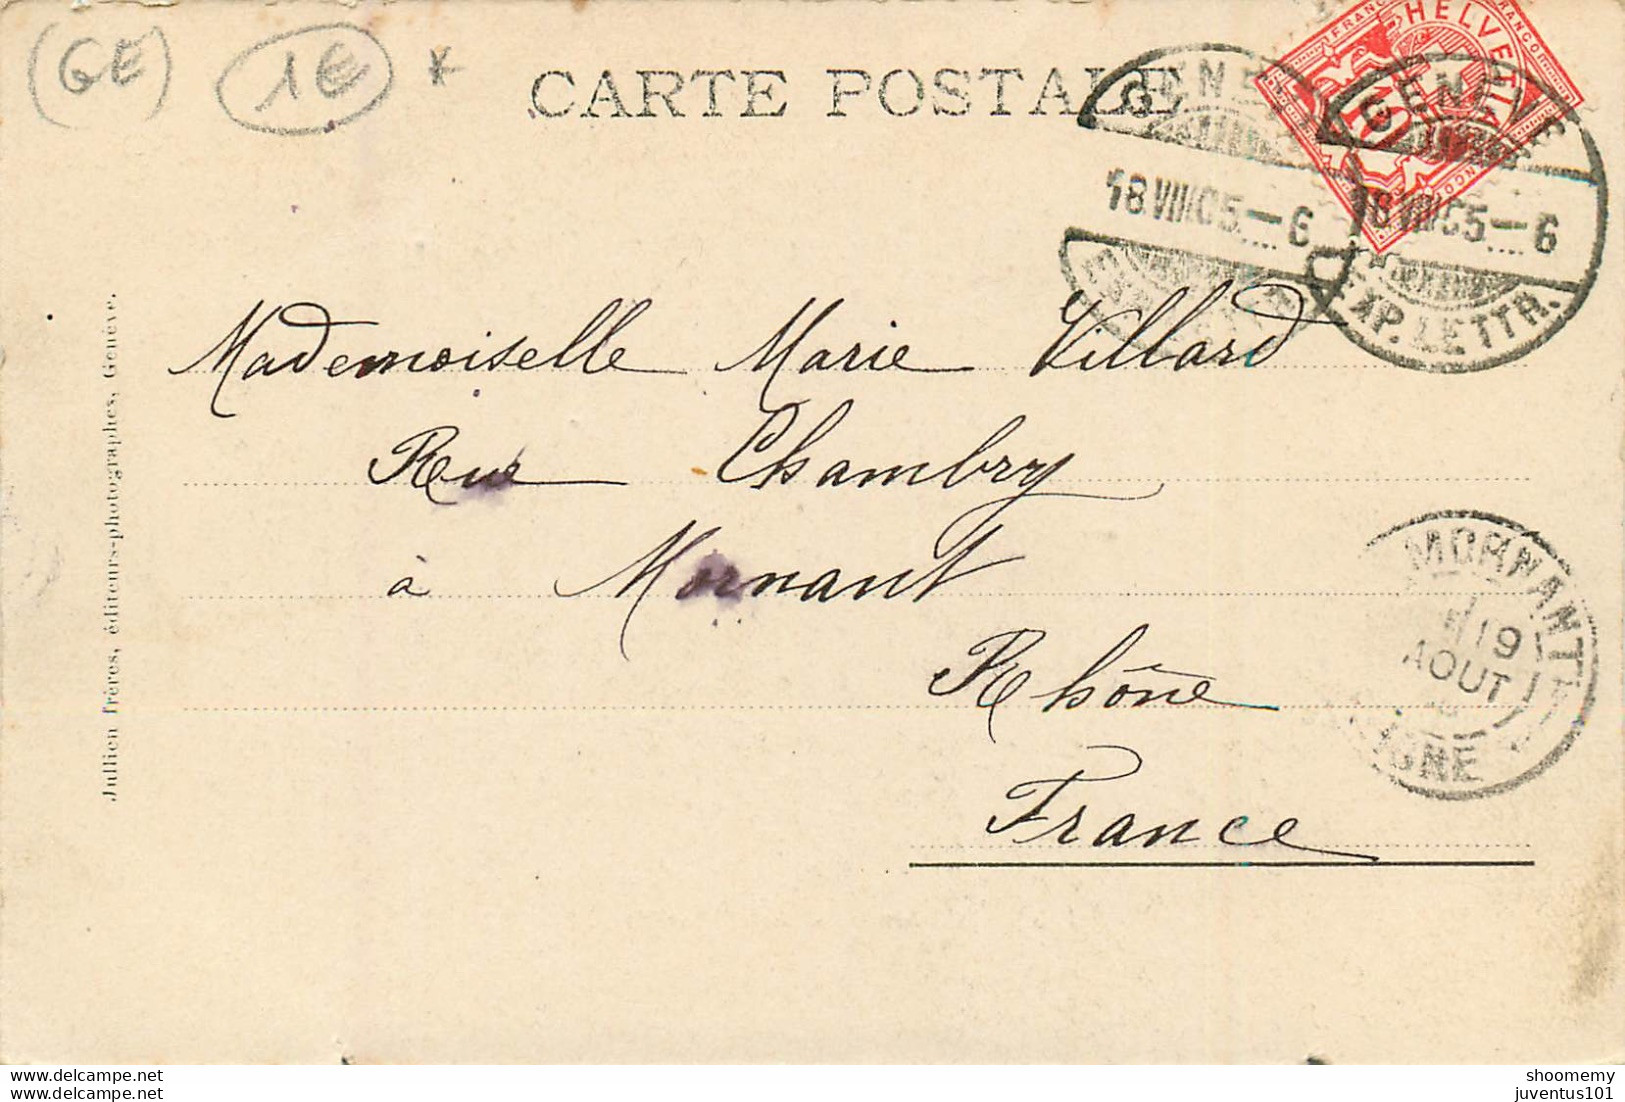 (GE) 1€ *
CARTE POSTALE
HELVETIA
FRANCO
10
GENÈVE
18 VIII 05 – 6
GENÈVE
18 VIII 05 – 6
EXP. LETTR.
Mademoiselle Marie Villard
Rue Chambry
à Mornant
Rhône
France
MORNANT
19
AOUT
Jullien frères, éditeurs-photographes, Genève.
www.delcampe.net
www.delcampe.net
shoomemy
juventus101